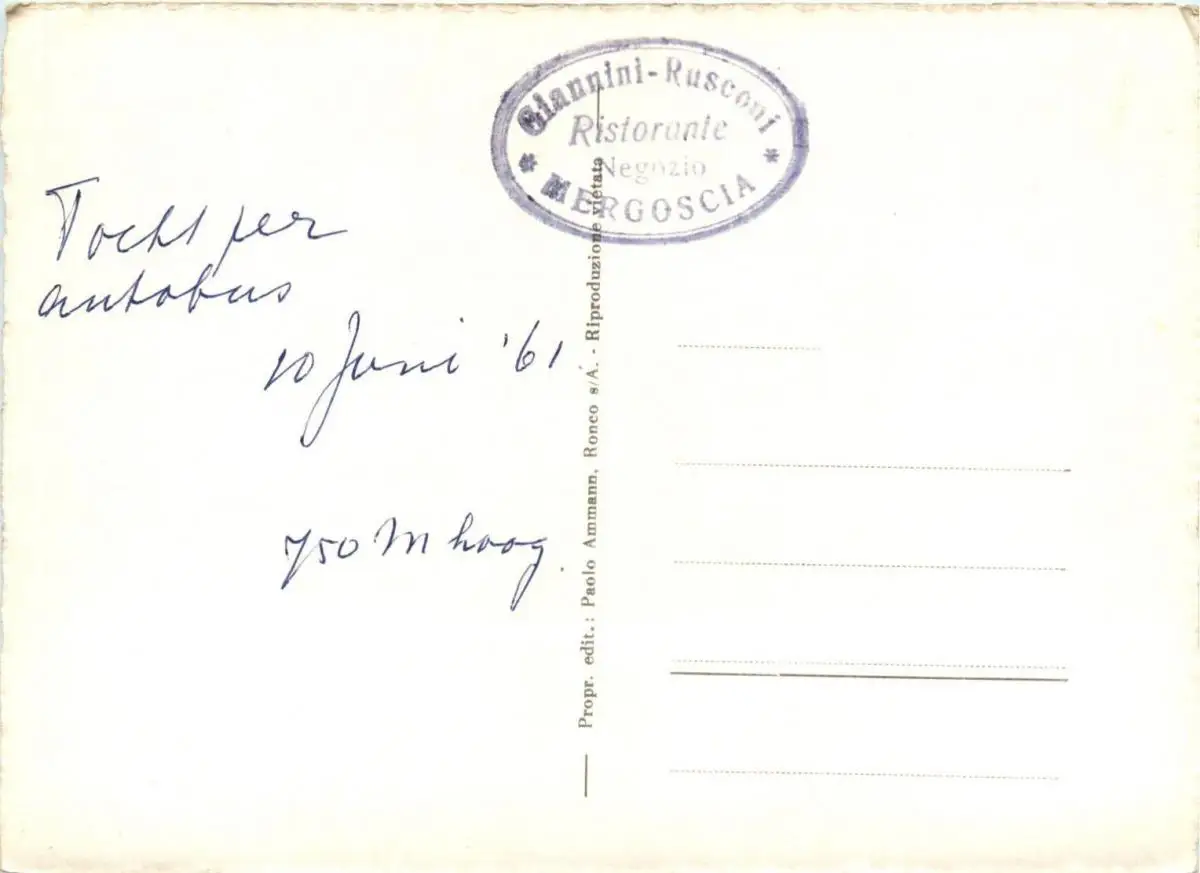 Giannini-Rusconi
Ristorante
Negozio
* MERGOSCIA *
Tocht per
autobus
10 Juni '61
750 M hoog.
Propr. edit.: Paolo Ammann, Ronco s/A. - Riproduzione vietata